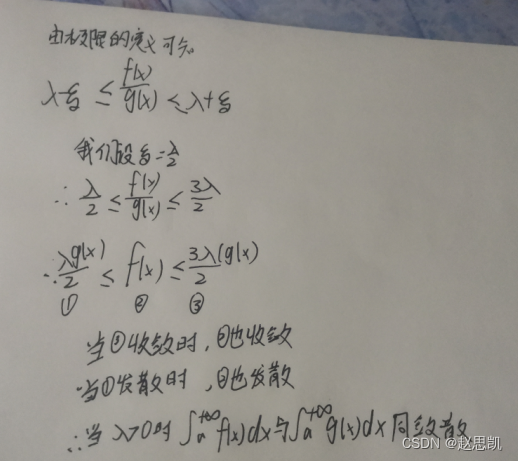 由极限的定义可知
λ-ξ ≤ f(x)/g(x) ≤ λ+ξ
我们设ξ=λ/2
∴ λ/2 ≤ f(x)/g(x) ≤ 3λ/2
∴ λg(x)/2 ≤ f(x) ≤ 3λ(g(x)/2
① ② ③
当②收敛时,①也收敛
当①发散时,②也发散
∴当 λ>0时 ∫a+∞ f(x)dx与∫a+∞ g(x)dx 同敛散
CSDN @赵思凯